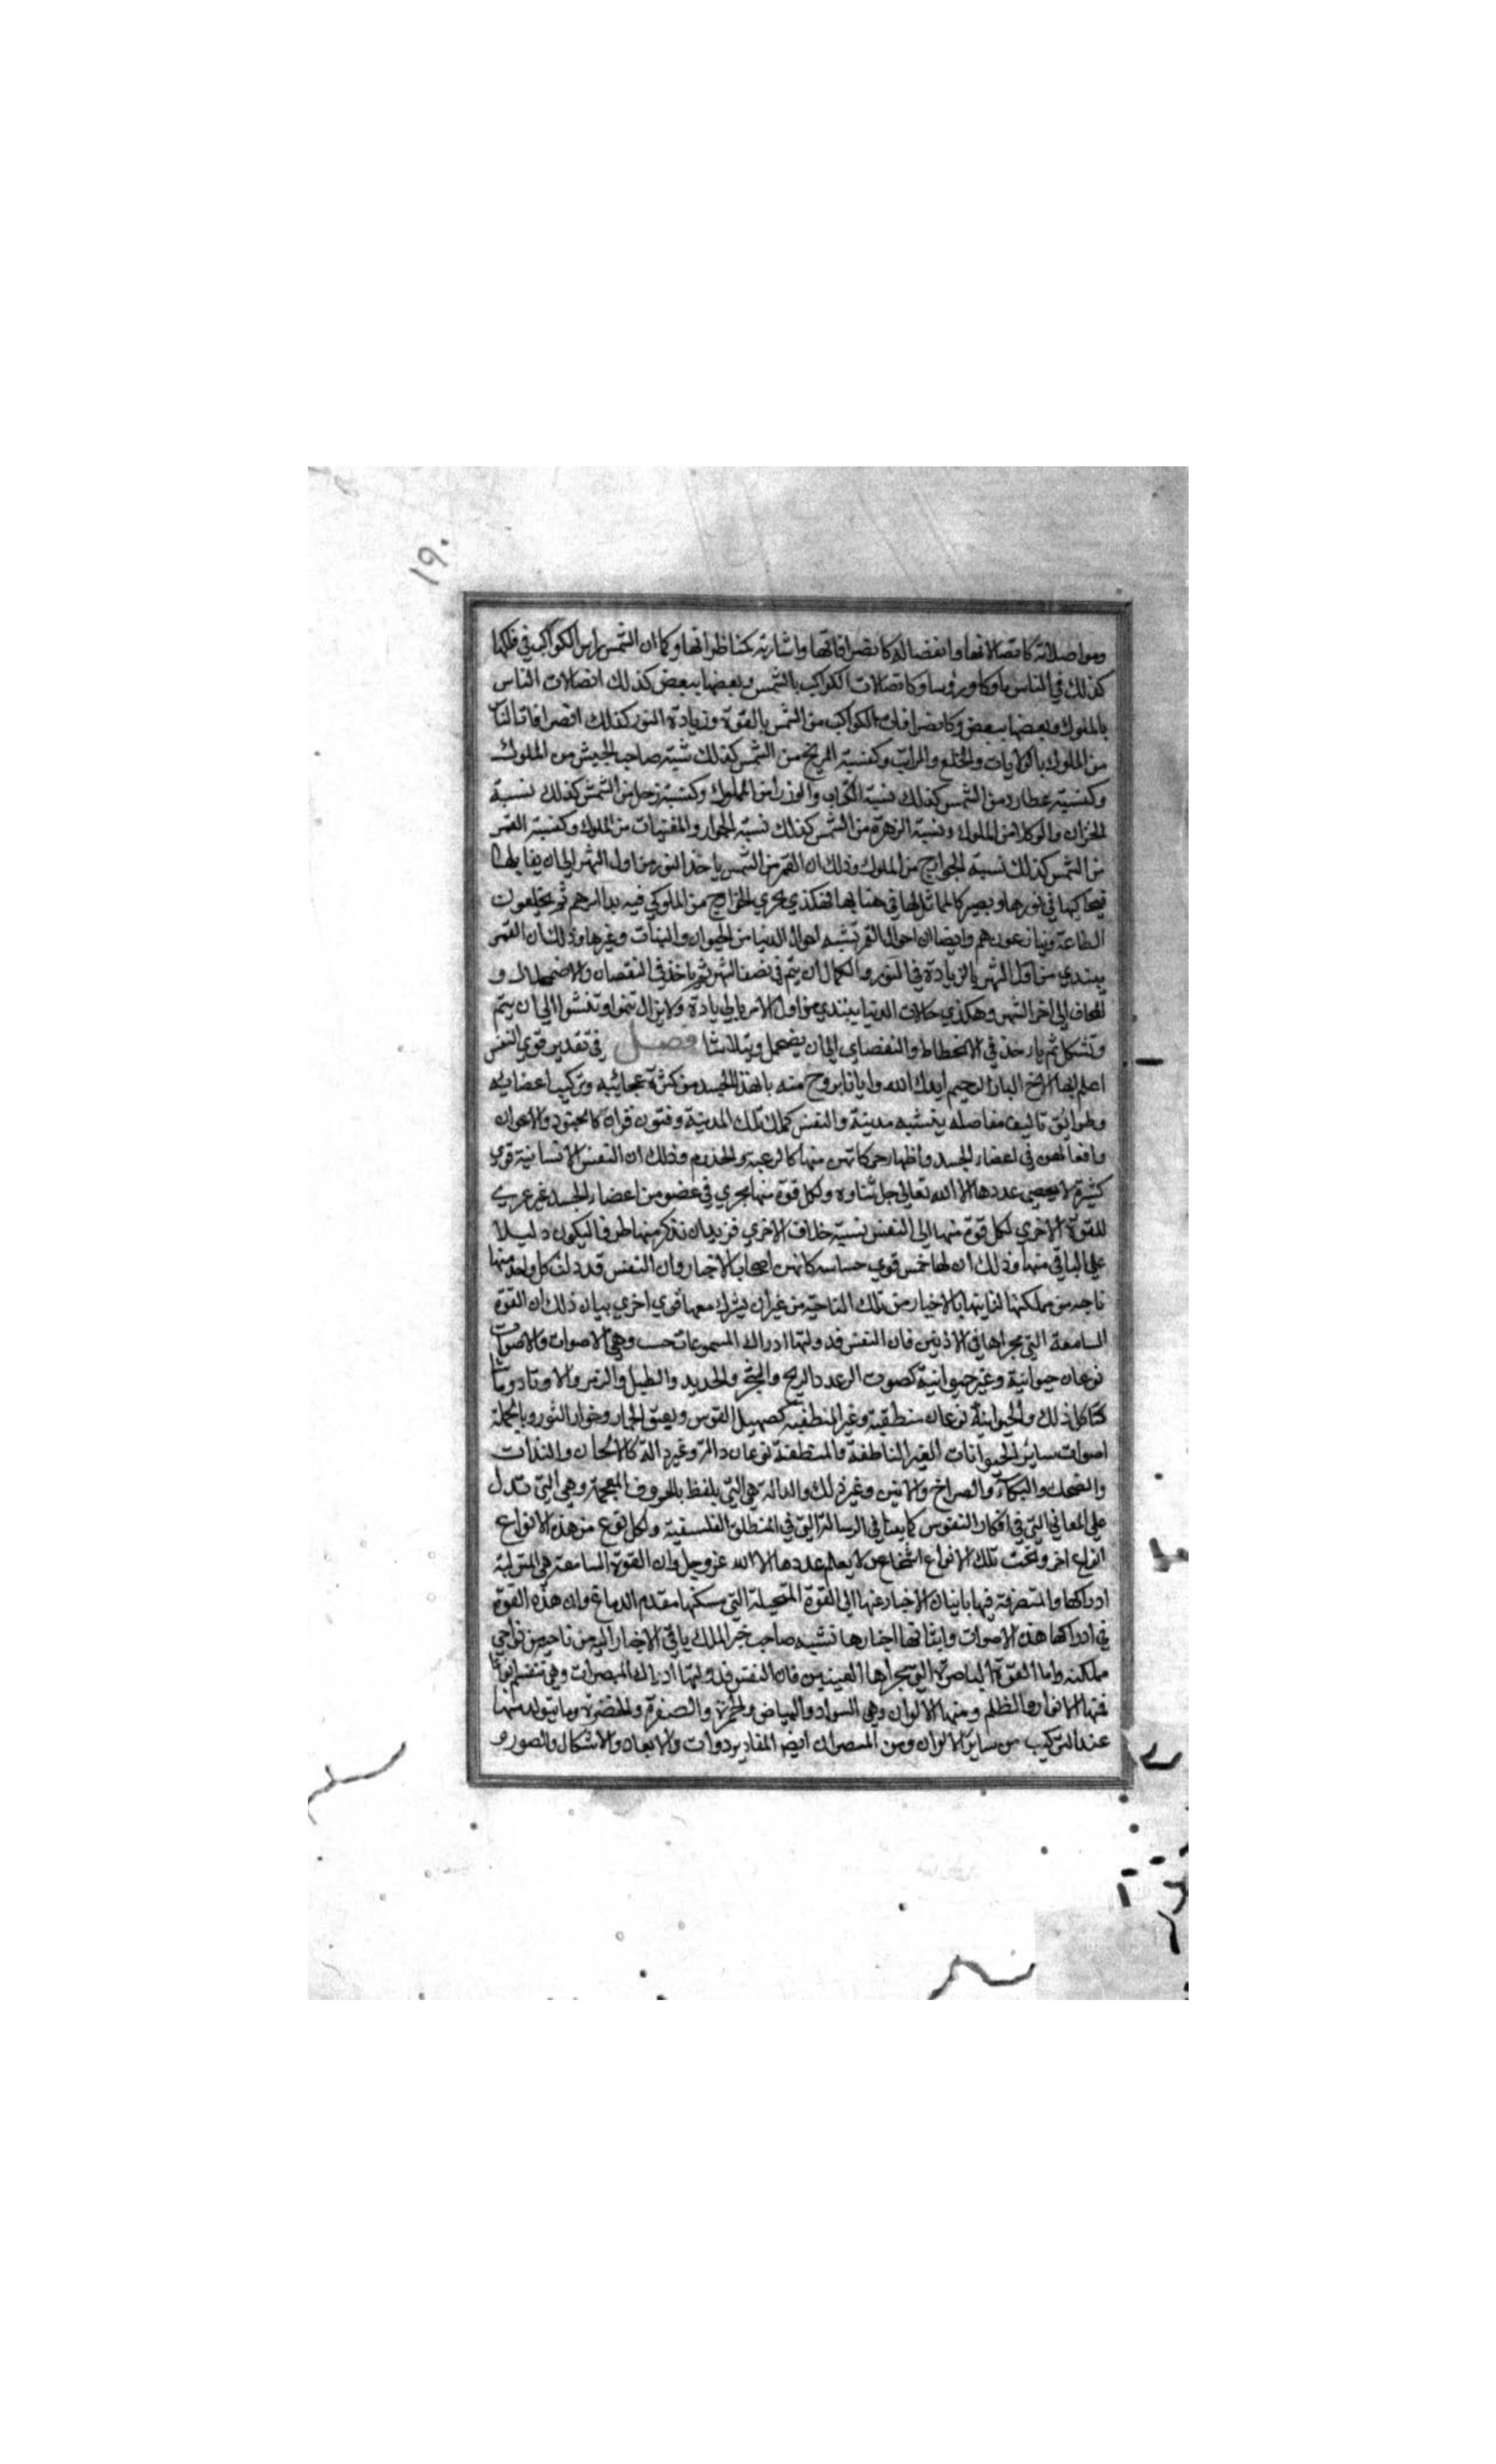 ١٩٠
ومواصلاته كاتصالاتها وانفصاله كانصرافاتها واشارته كمناظراتها وكما ان الشمس راس الكواكب في فلكها
كذلك في الناس ملوكا ورؤسا وكاتصالات الكواكب بالشمس وبعضها ببعض كذلك اتصالات الناس
بالملوك وبعضها ببعض وكانصرافات الكواكب من الشمس بالقوة وزيادة النور كذلك انصرافات الناس
من الملوك بالولايات والخلع والمراتب وكنسبة المريخ من الشمس كذلك نسبة صاحب الجيش من الملوك
وكنسبة عطارد من الشمس كذلك نسبة الكتاب والوزرا من الملوك وكنسبة زحل من الشمس كذلك نسبة
الخزان والوكلا من الملوك ونسبة الزهرة من الشمس كذلك نسبة الجوار والمغنيات من الملوك وكنسبة القمر
من الشمس كذلك نسبة الخوارج من الملوك وذلك ان القمر من الشمس ياخذ النور من اول الشهر الى ان يقابلها
فيحاكيها في نورها ويصير كالمماثل لها في هيئتها فهكذي يجري الخوارج من الملوك فيه بدا امرهم ثم يخلعون
الطاعة وينازعونهم وايضا ان احوال القمر تشبه احوال الدنيا من الحيوان والنبات وغيرها وذلك ان القمر
يبتدي من اول الشهر بالزيادة في النور والكمال ان يتم في نصف الشهر ثم ياخذ في النقصان والاضمحلال و
المحاق الى اخر الشهر وهكذي حالات الدنيا يبتدي من اول الامر بالزيادة ولا يزال تنموا وتنشوا الى ان يتم
وتشكل ثم ياخذ في الانحطاط والنقصان الى ان يضمحل ويتلاشا فصل في تقدير قوي النفس
اعلم ايها الاخ البار الرحيم ايدك الله وايانا بروح منه بان هذا الجسد من كثرة عجائبه وتركيب اعضائه
وطرائق تاليف مفاصله يشبه مدينة والنفس كملك تلك المدينة وفنون قواه كالجنود والاعوان
وافعالهن في اعضاء الجسد واظهار حركاتهن منها كالرعية والخدم وذلك ان النفس الانسانية قوي
كثيرة لا يحصي عددها الا الله تعالى جل ثناوه ولكل قوة منها مجري في عضو من اعضاء الجسد غير مجري
للقوة الاخري لكل قوة منها الى النفس نسبة خلاف الاخري فنريد ان نذكر منها طرفا ليكون دليلا
علي الباقي منها وذلك ان لها خمس قوي حساسه كانهن اصحاب الاخبار وان النفس قد ولت كل واحد منها
ناحية من مملكتها لتاتيها بالاخبار من تلك الناحية من غير ان يشرك معها قوي اخري بيان ذلك ان القوة
السامعة التي مجراها في الاذنين فان النفس قد ولتها ادراك المسموعات حسب وهي الاصوات والاصوات
نوعان حيوانية وغير حيوانية كصوت الرعد والريح والحجر والحديد والطبل والزمر والاوتار وما شا
كل ذلك والحيوانية نوعان منطقية وغير المنطقية كصهيل الفرس ونهيق الحمار وخوار الثور وبالجملة
اصوات سائر الحيوانات الغير الناطقة والمنطقية نوعان دالة وغير دالة كالالحان والنغمات
والضحك والبكاء والصراخ والانين وغير ذلك والدالة هي التي يلفظ بالحروف المعجمة وهي التي تدل
علي المعاني التي في افكار النفوس كما بينا في الرسالة التي في المنطق الفلسفية ولكل نوع من هذه الانواع
انواع اخر وتحت تلك الانواع اشخاص لا يعلم عددها الا الله عز وجل وان القوة السامعة هي المتولية
ادراكها والمتصرفة فيها باتيان الاخبار عنها الى القوة المتخيلة التي مسكنها مقدم الدماغ وان هذه القوة
في ادراكها هذه الاصوات وايتائها اخبارها تشبه صاحب خبر الملك ياتي الاخبار اليه من ناحية من نواحي
مملكته واما القوة الباصرة التي مجراها العينين فان النفس قد ولتها ادراك المبصرات وهي تنقسم انواعا
فمنها الانوار والظلم ومنها الالوان وهي السواد والبياض والحمرة والصفرة والخضرة وما يتولد منها
عند التركيب من سائر الالوان ومن المبصرات ايضا المقادير ذوات والابعاد والاشكال والصور و